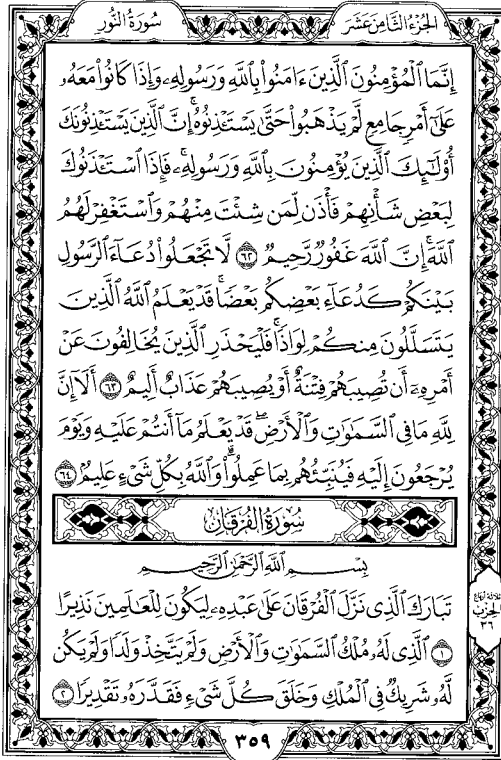 سُورَةُ النُّورِ
الجُزْءُ الثَّامِنَ عَشَرَ
إِنَّمَا ٱلْمُؤْمِنُونَ ٱلَّذِينَ ءَامَنُوا۟ بِٱللَّهِ وَرَسُولِهِۦ وَإِذَا كَانُوا۟ مَعَهُۥ
عَلَىٰٓ أَمْرٍ جَامِعٍ لَّمْ يَذْهَبُوا۟ حَتَّىٰ يَسْتَـْٔذِنُوهُ ۚ إِنَّ ٱلَّذِينَ يَسْتَـْٔذِنُونَكَ
أُو۟لَـٰٓئِكَ ٱلَّذِينَ يُؤْمِنُونَ بِٱللَّهِ وَرَسُولِهِۦ ۚ فَإِذَا ٱسْتَـْٔذَنُوكَ
لِبَعْضِ شَأْنِهِمْ فَأْذَن لِّمَن شِئْتَ مِنْهُمْ وَٱسْتَغْفِرْ لَهُمُ
ٱللَّهَ ۚ إِنَّ ٱللَّهَ غَفُورٌ رَّحِيمٌ ٦٢ لَّا تَجْعَلُوا۟ دُعَآءَ ٱلرَّسُولِ
بَيْنَكُمْ كَدُعَآءِ بَعْضِكُم بَعْضًا ۚ قَدْ يَعْلَمُ ٱللَّهُ ٱلَّذِينَ
يَتَسَلَّلُونَ مِنكُمْ لِوَاذًا ۚ فَلْيَحْذَرِ ٱلَّذِينَ يُخَالِفُونَ عَنْ
أَمْرِهِۦٓ أَن تُصِيبَهُمْ فِتْنَةٌ أَوْ يُصِيبَهُمْ عَذَابٌ أَلِيمٌ ٦٣ أَلَآ إِنَّ
لِلَّهِ مَا فِى ٱلسَّمَـٰوَٰتِ وَٱلْأَرْضِ ۖ قَدْ يَعْلَمُ مَآ أَنتُمْ عَلَيْهِ وَيَوْمَ
يُرْجَعُونَ إِلَيْهِ فَيُنَبِّئُهُم بِمَا عَمِلُوا۟ ۗ وَٱللَّهُ بِكُلِّ شَىْءٍ عَلِيمٌۢ ٦٤
سُورَةُ الفُرْقَانِ
بِسْمِ ٱللَّهِ ٱلرَّحْمَـٰنِ ٱلرَّحِيمِ
تَبَارَكَ ٱلَّذِى نَزَّلَ ٱلْفُرْقَانَ عَلَىٰ عَبْدِهِۦ لِيَكُونَ لِلْعَـٰلَمِينَ نَذِيرًا
١ ٱلَّذِى لَهُۥ مُلْكُ ٱلسَّمَـٰوَٰتِ وَٱلْأَرْضِ وَلَمْ يَتَّخِذْ وَلَدًا وَلَمْ يَكُن
لَّهُۥ شَرِيكٌ فِى ٱلْمُلْكِ وَخَلَقَ كُلَّ شَىْءٍ فَقَدَّرَهُۥ تَقْدِيرًا ٢
ثلاثة أرباع
الحزب
٣٦
٣٥٩